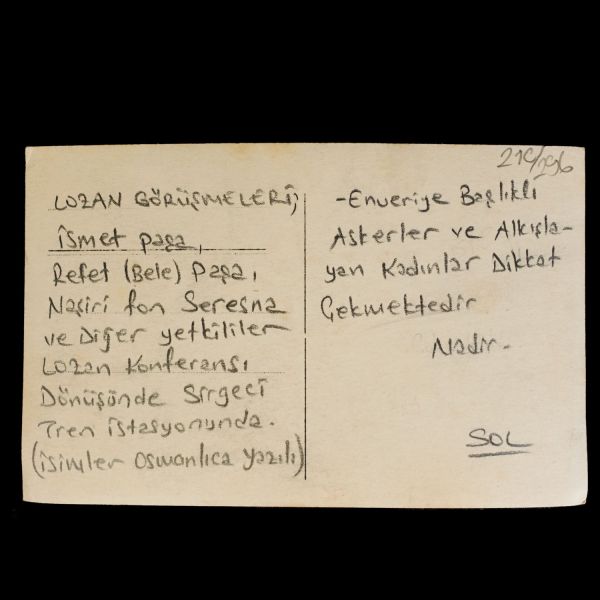 219/296
LOZAN GÖRÜŞMELERİ;
İsmet paşa,
Refet (Bele) Paşa,
Naşiri fon Seresna
ve Diğer yetkililer
Lozan Konferansı
Dönüşünde Sirgeci
Tren İstasyonunda.
(İsimler Osmanlıca Yazılı)
-Enveriye Başlıklı
Askerler ve Alkışla-
yan Kadınlar Dikkat
Çekmektedir
Nadir-
SOL